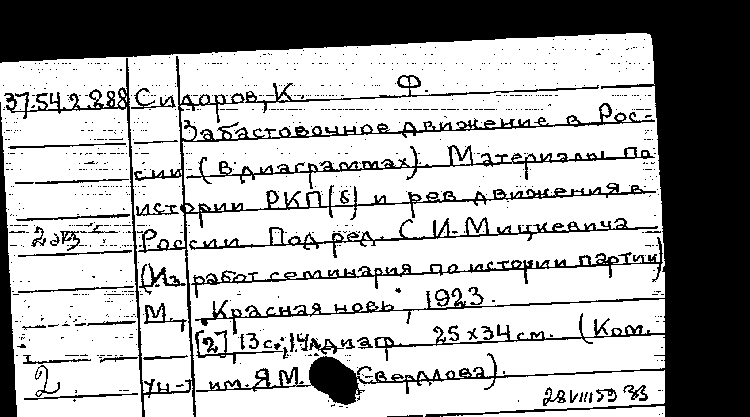 37.54.2.888 Сидоров, К. Ф.
Забастовочное движение в Рос-
сии (в диаграммах). Материалы по
истории РКП(б) и рев. движения в
2 экз. России. Под ред. С. И. Мицкевича
(Из работ семинария по истории партии)
М., "Красная новь", 1923.
[2], 13 с.; 14 л. диагр. 25 x 34 см. (Ком.
2 ун-т им. Я.М. Свердлова).
28 VIII 59